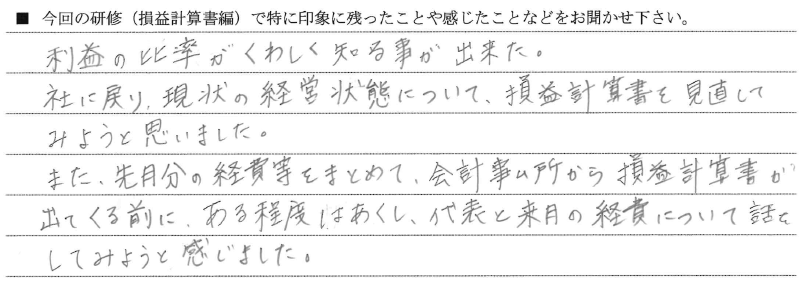 ■ 今回の研修（損益計算書編）で特に印象に残ったことや感じたことなどをお聞かせ下さい。
利益の比率がくわしく知る事が出来た。
社に戻り、現状の経営状態について、損益計算書を見直して
みようと思いました。
また、先月分の経費等をまとめて、会計事ム所から損益計算書が
出てくる前に、ある程度はあくし、代表と来月の経費について話を
してみようと感じました。